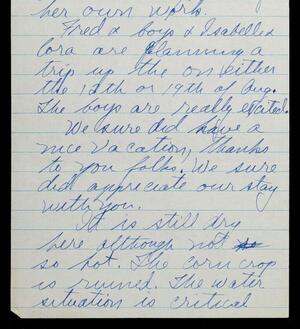 her own work.
Fred & boys & Isabelle &
Cora are planning a
trip up the on either
the 12th or 19th of Aug.
The boys are really excited.
We sure did have a
nice vacation, Thanks
to you folks. We sure
did appreciate our stay
with you.
It is still dry
here although not
so hot. The corn crop
is ruined. The water
situation is critical